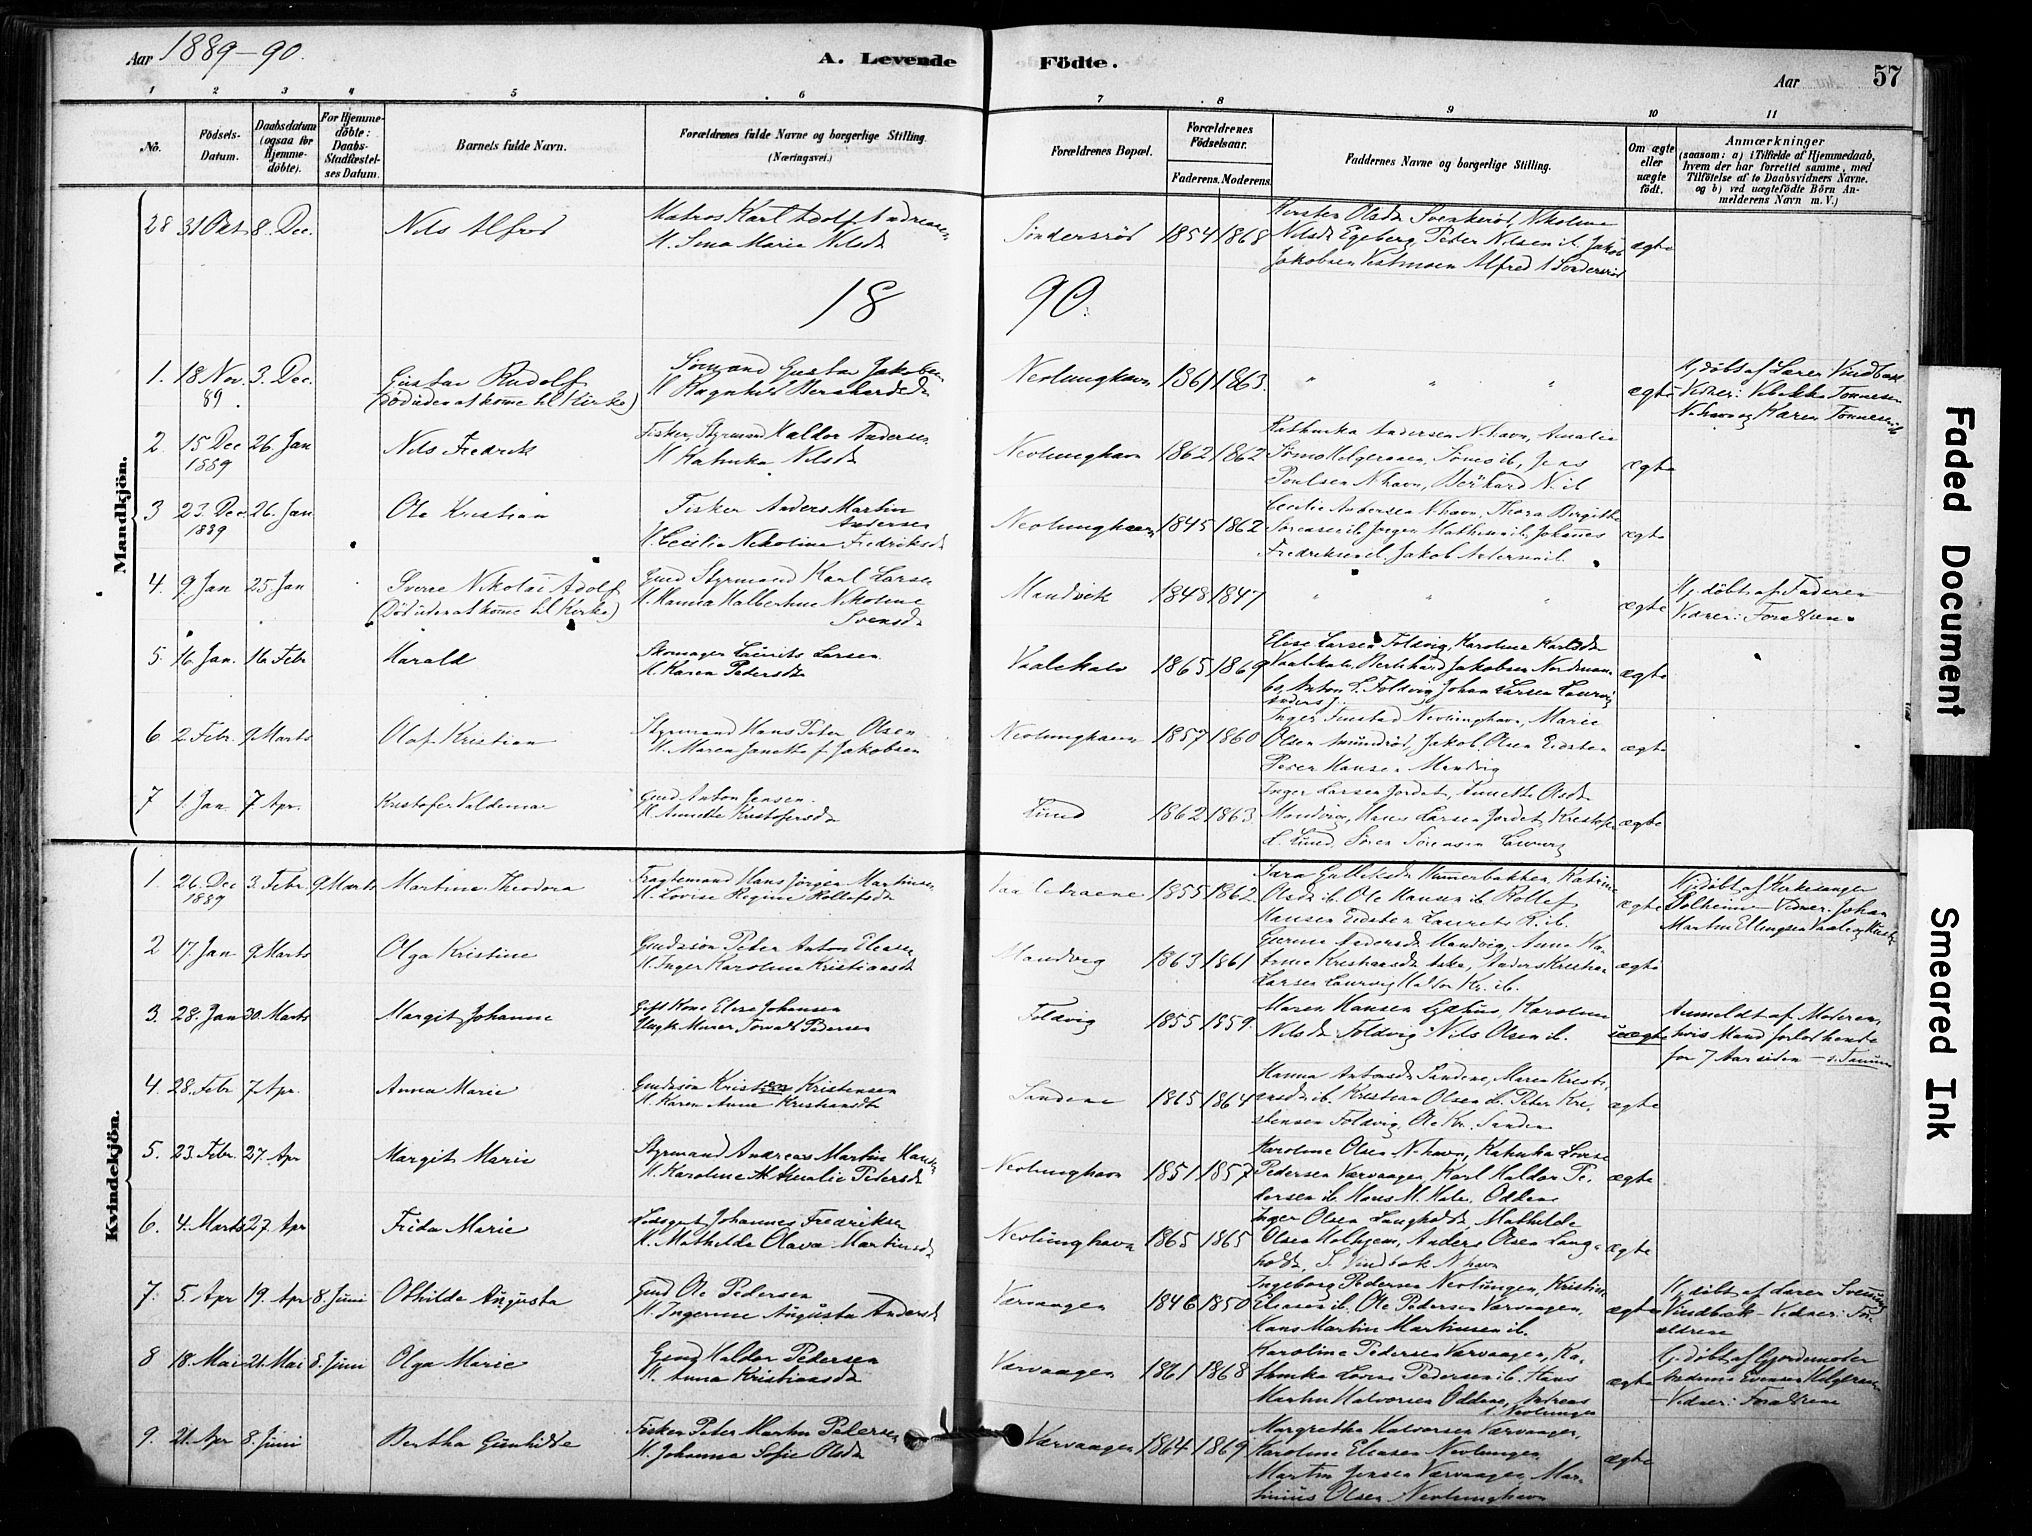 Aar 1889-90.
A. Levende Födte.
Aar 57
1 2 3 4 5 6 7 8 9 10 11
No.
Födsels-Datum.
Daabsdatum (ogsaa for Hjemmedöbte).
For Hjemmedöbte: Daabs-Stadfæstelses Datum.
Barnets fulde Navn.
Forældrenes fulde Navne og borgerlige Stilling.
(Næringsvei.)
Forældrenes Bopæl.
Forældrenes Födselsaar.
Faderens. Moderens.
Faddernes Navne og borgerlige Stilling.
Om ægte eller uægte födt.
Anmærkninger
(saasom: a) i Tilfælde af Hjemmedaab,
hvem der har forrettet samme, med
Tilföielse af to Daabsvidners Navne.
og b) ved uægtefödte Börn Anmelderens Navn m. V.)
Mandkjön.
28 31 Okt 8. Dec. Nils Alfred
Matros Karl Adolf Andreasen
H. Sina Marie Nilsdt
Söndersröd 1854 1868
Nilsdt Egeberg, Peder Nilsen ib. Jakob
Jakobsen Vestmoen Alfred A Söndersröd
ægte
18 90.
1. 18 Nov. 89. 3. Dec. Gustav Rudolf
(Död uden at komme til Kirke)
Sömand Gustav Jakobsen
H Ragnhild Bernhardsdt
Nevlunghavn 1861 1863. " " " ægte
Hj. döbt af Lærer Vindbak
Vidner: Vibekke Tönnesen
N.havn og Karen Tönnesen ib
2 15 Dec 1889 26 Jan Nils Fredrik
Fisker, Styrmand Haldor Andersen
H Kathinka Nilsdt
Nevlunghavn 1862 1862
Kathinka Andersen N.havn, Amalie
Poulsen N.havn, Bernhard N. ib
ægte
3 23. Dec. 1889 26. Jan Ole Kristian
Fisker Anders Martin
Andersen
H. Cecilie Nikoline Fredriksdt
Nevlunghavn 1845 1862
Cecilie Andersen N.havn, Thora Birgitte
Sörensen ib. Jörgen Mathisen ib, Johannes
Fredriksen ib. Jakob Andersen ib.
ægte
4. 9. Jan 25 Jan Sverre Nikolai Adolf
(Död uden at komme til Kirke)
Gmd Styrmand Karl Larsen
H. Hanna Halberthine Nikoline
Svensdt
Mandvik 1848 1847 " " " ægte
Hj. döbt af Faderen
Vidner: Forældrene
5. 16. Jan. 16 Febr Harald
Skomager Laurits Larsen.
H. Karen Pedersdt
Vaalekalv 1865 1869
Elise Larsen Foldvig, Karoline Karlsdt
Vaalekalv Bernhard Jakobsen Nordman
Anton L. Foldvig Johan Larsen Laurvig
ægte
6 2. Febr. 9. Marts Olaf Kristian
Styrmand Hans Peter Olsen
H. Maren Janette f. Jakobsen
Nevlunghavn 1857 1860
Nevlunghavn, Marie
Jakob Olsen Eidsten
Peder Hansen Mandvig
ægte
7 1. Jan 7. Apr. Kristofer Valdemar
Gmd Anton Jensen.
H. Annette Kristofersdt
Lund 1862 1863.
Inger Larsen Jordet, Annette Olsdt
Mandvig, Hans Larsen Jordet Kristofer
L. Lund, Sören Sörensen Laurvig
ægte
Kvindekjön.
1. 26. Dec 1889 3. Febr. 9. Marts Martine Theodora
Fragtemand Hans Jörgen Martinsen
H. Lovise Regine Rollefsdt
1855 1862.
Sara Gulleiksdt Hammerbakken, Katrine
Olsdt ib. Ole Hansen ib. Rollef
Hansen Eidsten Laurits R. ib.
ægte
Hj. döbt af Kirkesanger
Solheim - Vidner: Johan
Martin Ellingsen
2 17. Jan 9 Marts Olga Kristine
Gmdssön Peter Anton Eliasen
H. Inger Karoline Kristiansdt
Mandvig 1863 1861
Gurine Andersdt Mandvig, Anna Katrine
Kristiansdt Aske, Anders Kristian
Larsen Laurvig Haldor Kr. ib.
ægte
3. 28. Jan 30. Marts Margit Johanne
Gift Kone Elise Johansen
Ungk. Murer Torvald Pedersen
Foldvig 1855 1859.
Maren Hansen Gashus, Karoline
Nilsdt Foldvig Nils Olsen ib.
uægte
Anmeldt af Moderen,
hvis Mand forlod hende
for 7 Aar siden -
4. 28. Febr 7. Apr. Anna Marie
Gmdssön Kristen Kristensen
H. Karen Anne Kristiansdt
Sandene 1865 1864
Hanna Antonsdt Sandene, Maren Kristiansdt
ib. Kristian Olsen ib. Peter Kristensen
Foldvig, Ole Kr. Sandene
ægte
5. 23. Febr. 27. Apr Margit Marie
Styrmand Andreas Martin Hansen
H. Karoline Amalie Pedersdt
Nevlunghavn 1851 1857
Karoline Olsen N.havn, Kathinka Lovise
Pedersen Værvaagen, Karl Haldor Pedersen
ib. Hans M. Hals, Oddene
ægte
6 4. Marts 27. Apr Frida Marie
Johannes Fredriksen
H. Mathilde Olava Martinsdt
Nevlunghavn 1865 1865
Inger Olsen Langholdt, Mathilde
Olsen Halhjem, Anders Olsen Langholdt,
S. Vindbak N.havn
ægte
7. 5. Apr 19. Apr 8. Juni Othilde Augusta
Gmd Ole Pedersen
H. Ingerine Augusta Andersdt
Værvaagen 1846 1850
Ingeborg Pedersen Nevlungen, Kristine
Eliasen ib. Ole Pedersen Værvaagen,
Hans Martin Martinsen ib.
ægte
Hj. döbt af Lærer
Vindbak - Vidner: Forældrene
8 18. Mai 21. Mai 8. Juni Olga Marie
Gmd Haldor Pedersen
H. Anna Kristiansdt
Værvaagen 1861 1868
Karoline Pedersen Værvaagen, Kathinka
Lovise Pedersen ib. Hans
Martin Halvorsen Oddene, Andreas
Nevlungen
ægte
Hj. döbt af Gjordemoder
Evensen Helgeroen
- Vidner: Forældrene
9. 21. Apr 8. Juni Bertha Gunhilde
Fisker Peter Martin Pedersen
H. Johanna Sofie Olsdt
Værvaagen 1864 1869
Margrethe Halvorsen Værvaagen,
Karoline Eliasen Nevlungen,
Martin Jensen Værvaagen, Marthinius
Olsen Nevlunghavn
ægte
Faded Document
Smeared Ink